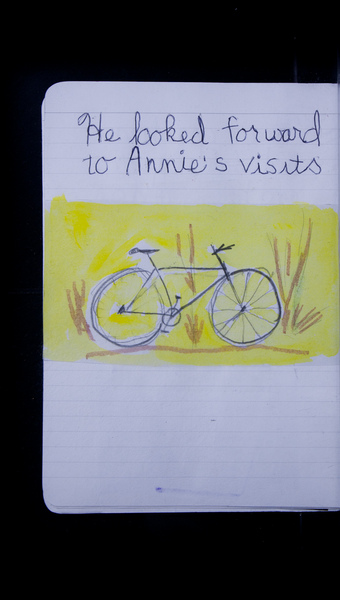 He looked forward
to Annie's visits